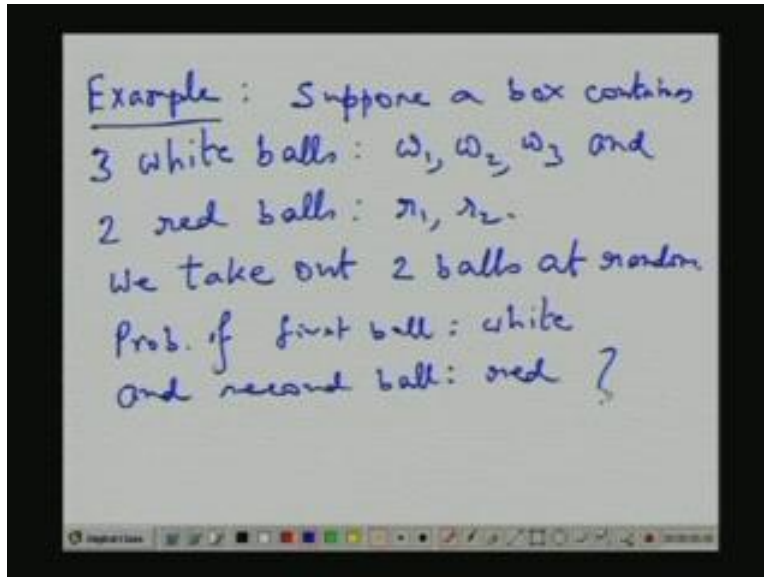 Example : Suppose a box contains
3 white balls : ω₁, ω₂, ω₃ and
2 red balls : r₁, r₂.
We take out 2 balls at random
Prob. if first ball : white
and second ball : red ?